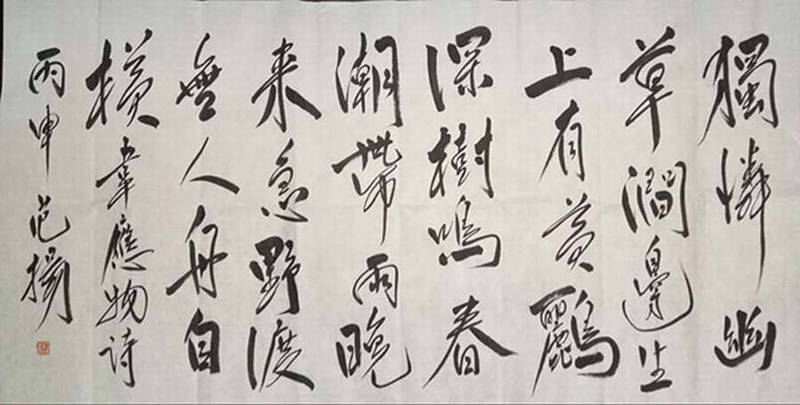 獨憐幽
草澗邊生
上有黃鸝
深樹鳴春
潮帶雨晚
来急野渡
無人舟自
横韋應物诗
丙申范揚